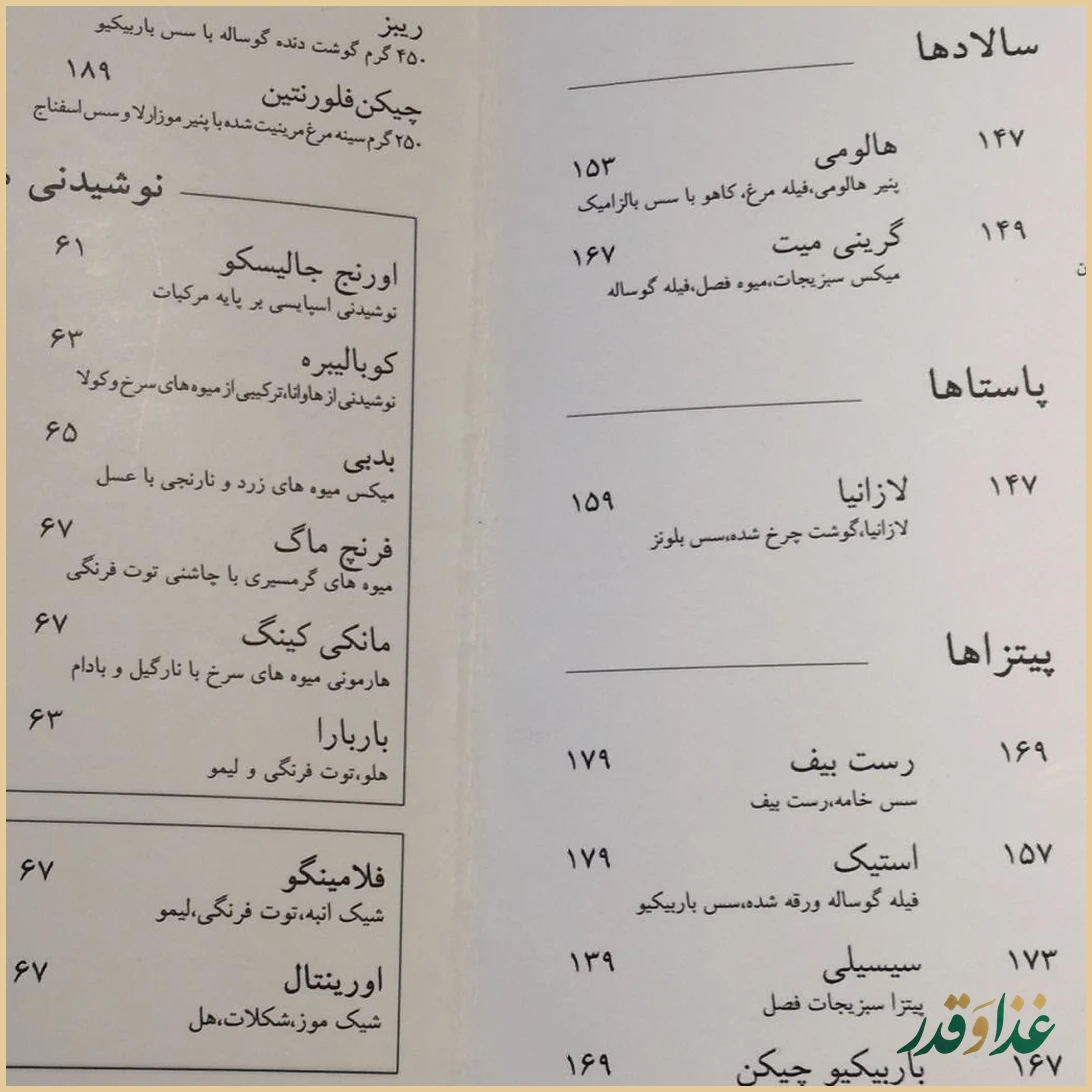 سالادها
۱۴۷
هالومی ۱۵۳
پنیر هالومی،فیله مرغ، کاهو با سس بالزامیک
۱۴۹
گرینی میت ۱۶۷
میکس سبزیجات،میوه فصل،فیله گوساله
پاستاها
۱۴۷
لازانیا ۱۵۹
لازانیا،گوشت چرخ شده،سس بلونز
پیتزاها
۱۶۹
رست بیف ۱۷۹
سس خامه،رست بیف
۱۵۷
استیک ۱۷۹
فیله گوساله ورقه شده،سس باربیکیو
۱۷۳
سیسیلی ۱۳۹
پیتزا سبزیجات فصل
۱۶۷
باربیکیو چیکن ۱۶۹
ریبز
۴۵۰ گرم گوشت دنده گوساله با سس باربیکیو
چیکن فلورنتین ۱۸۹
۲۵۰ گرم سینه مرغ مرینیت شده با پنیر موزارلا و سس اسفناج
نوشیدنی
اورنج جالیسکو ۶۱
نوشیدنی اسپایسی بر پایه مرکبات
کوبالیبره ۶۳
نوشیدنی از هاوانا،ترکیبی از میوه های سرخ و کولا
بدبی ۶۵
میکس میوه های زرد و نارنجی با عسل
فرنچ ماگ ۶۷
میوه های گرمسیری با چاشنی توت فرنگی
مانکی کینگ ۶۷
هارمونی میوه های سرخ با نارگیل و بادام
باربارا ۶۳
هلو،توت فرنگی و لیمو
فلامینگو ۶۷
شیک انبه،توت فرنگی،لیمو
اورینتال ۶۷
شیک موز،شکلات،هل
غذاوَقدر